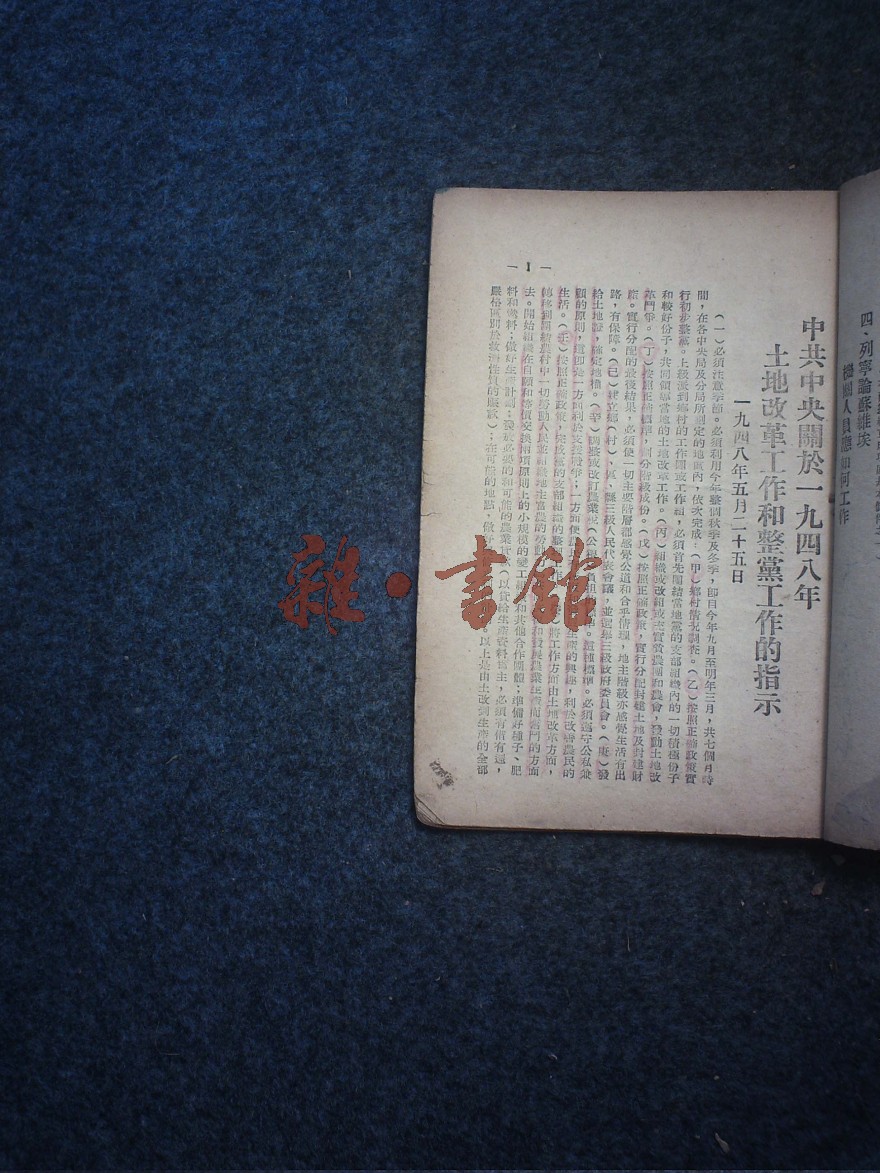 四、列寧論蘇維埃
機關人員應如何工作
中共中央關於一九四八年
土地改革工作和整黨工作的指示
一九四八年五月二十五日
(一)必須注意季節。必須利用今年整個秋季及冬季,即自今年九月至明年三月,共七個月時
間,在各中央局及分局所制定的地區內,依次完成:(甲)鄉村情況調查。(乙)按照正確政策實
行初步整黨。上級派到鄉村的工作團或工作組,必須首先團結當地黨的支部組織內的一切積極份子
和較好份子,共同領導當地的土地改革工作。(丙)組織或改組或充實貧農團和農會,發動土地改
革鬥爭。(丁)按照正確標準,劃分階級成份。(戊)按照正確政策,實行分配封建土地及封建財
產。實行分配的最後結果,必須使一切主要階層都感覺公道和合乎情理,地主階級亦感覺生活有出
路,有保障。(己)建立鄉(村)、區、縣三級人民代表會議,並選舉三級政府委員會。(庚)發
給土地證,確定地權。(辛)調整或改訂農業稅(公糧)負擔的標準。這種標準。必須遵守公私兼
顧的原則,這即是一方面利於支援戰爭;一方面使農民
生產的興趣,利於改善農民的
生活。(壬)按照正確政策,完成黨的支部組織的整理工作。
將工作方面由土地改革方面,
轉移到團結農村中一切勞動人民並組織地主富農的勞動
和發展農業生產而奮鬥的方面
去。開始組織在自願和等價交換兩項原則上的小規模的變工
和其他合作團體;準備好種子、肥
料和燃料;做好生產計劃;發放必要的和可能的農業貸款
以貸給生產資料為主,必須有借有還,
嚴格區別於救濟性質的賑款);在可能的地點,做好
以上是由土改到生產的全部
— 1 —
雜·書館